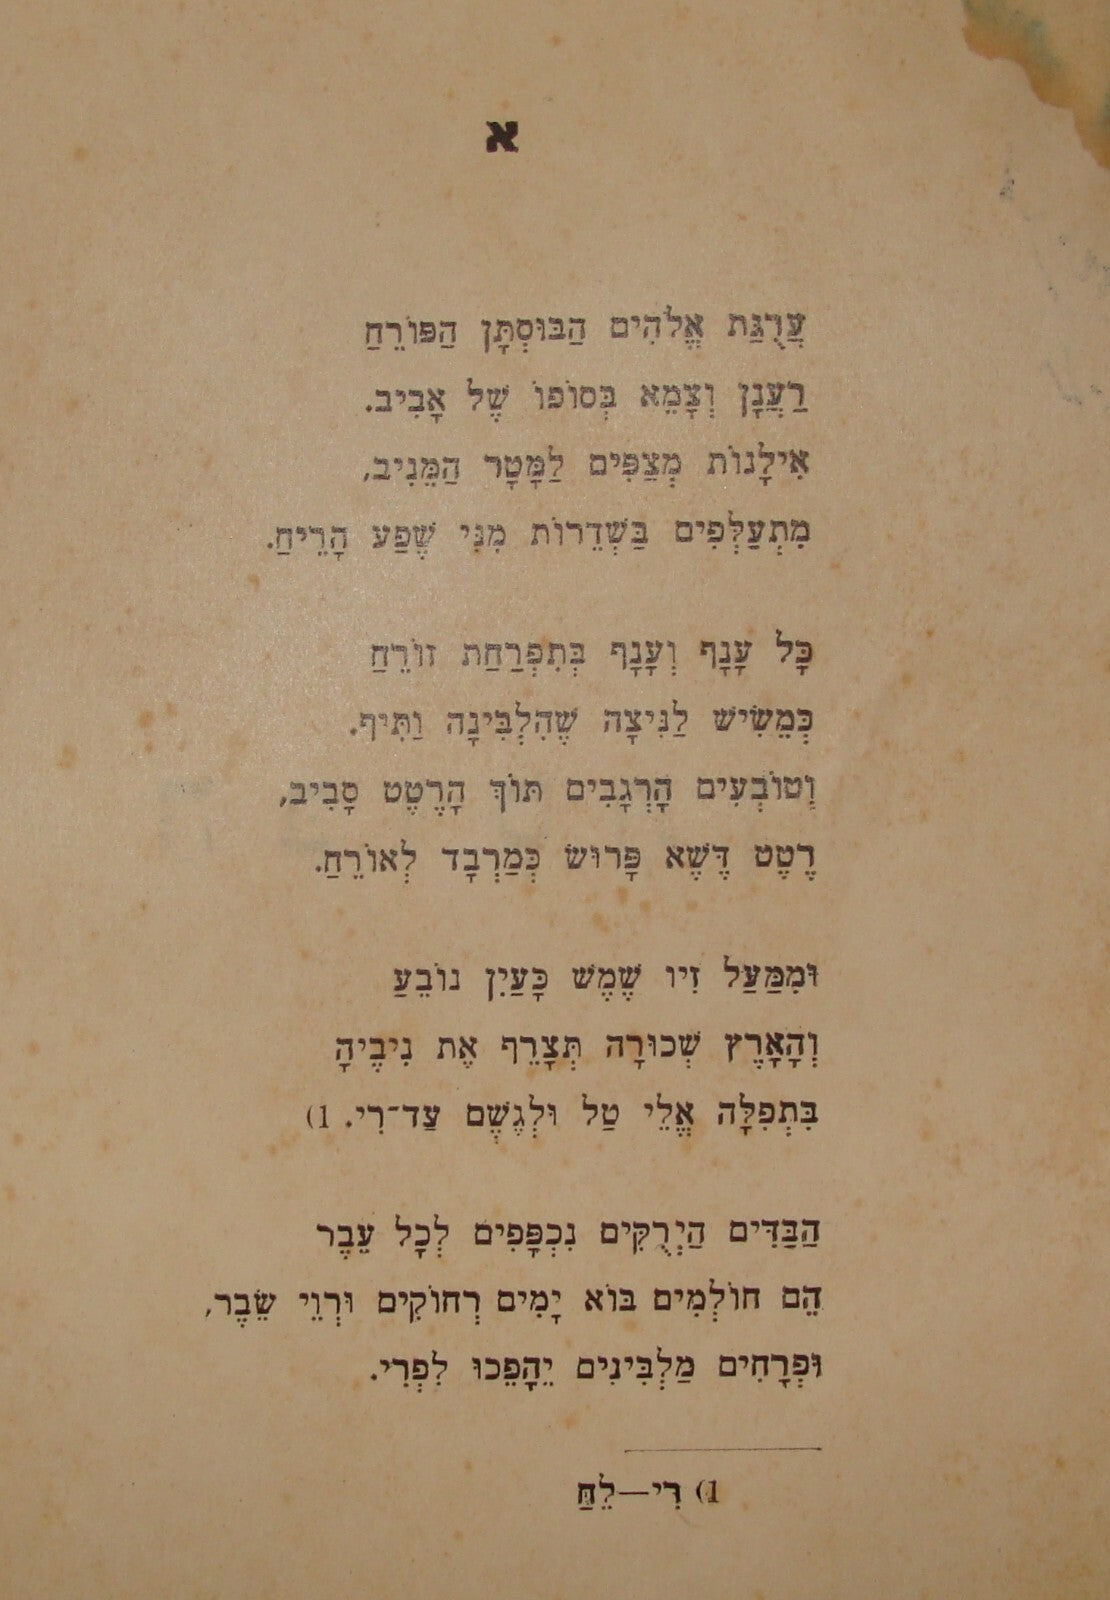 א
עֲרֻגַּת אֱלֹהִים הַבּוּסְתָּן הַפּוֹרֵחַ
רַעֲנָן וְצָמֵא בְּסוֹפוֹ שֶׁל אָבִיב.
אִילָנוֹת מְצַפִּים לַמָּטָר הַמֵּנִיב,
מִתְעַלְּפִים בַּשְּׂדֵרוֹת מִנִּי שֶׁפַע הָרֵיחַ.
כָּל עָנָף וְעָנָף בְּתִפְרַחַת זוֹרֵחַ
כְּמֵשִׂישׁ לַנִּיצָה שֶׁהִלְבִּינָה וַתִּיף.
וְטוֹבְעִים הָרְגָבִים תּוֹךְ הָרֶטֶט סָבִיב,
רֶטֶט דֶּשֶׁא פָּרוּשׂ כְּמַרְבָד לְאוֹרֵחַ.
וּמִמַּעַל זִיו שֶׁמֶשׁ כָּעַיִן נוֹבֵעַ
וְהָאָרֶץ שְׁכוּרָה תְּצָרֵף אֶת נִיבֶיהָ
בִּתְפִלָּה אֱלֵי טַל וּלְגֶשֶׁם עַד־רִי. 1)
הַבַּדִּים הַיְרֻקִּים נִכְפָּפִים לְכָל עֵבֶר
הֵם חוֹלְמִים בּוֹא יָמִים רְחוֹקִים וּרְוֵי שֵׂבֶר,
וּפְרָחִים מַלְבִּינִים יֵהָפְכוּ לִפְרִי.
1) רִי—לֵחַ